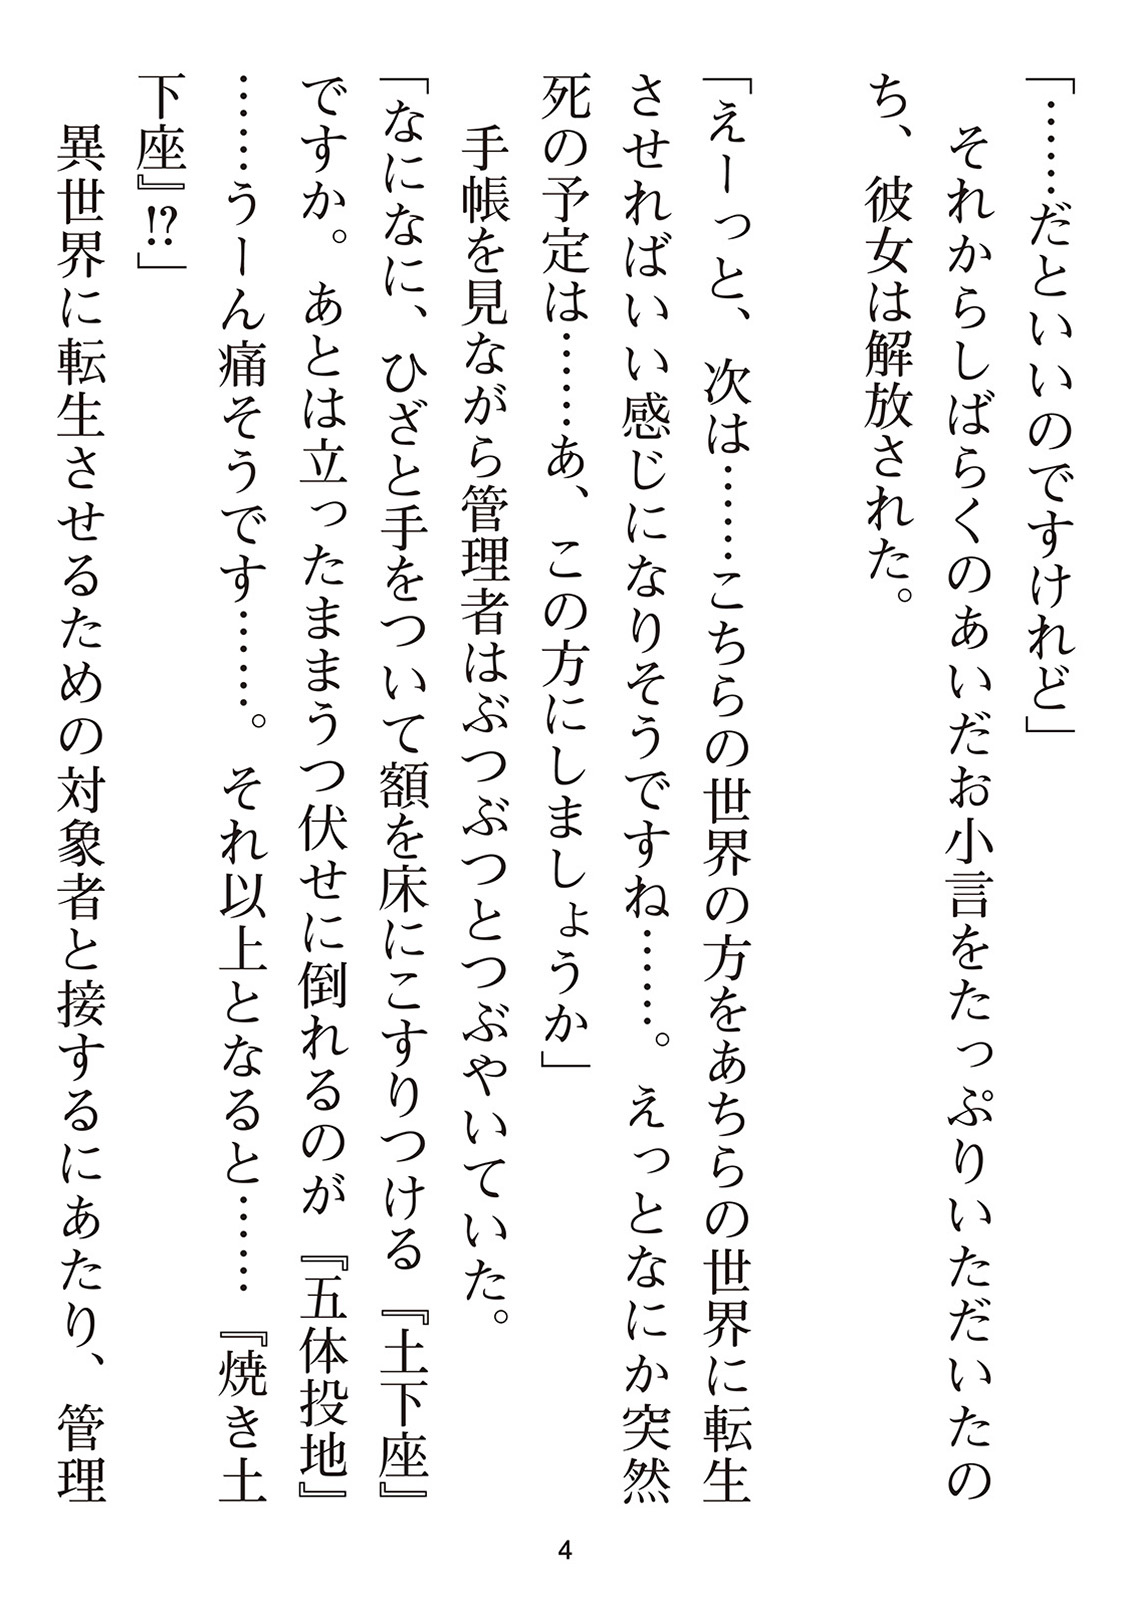 「……だといいのですけれど」
　それからしばらくのあいだお小言をたっぷりいただいたの
ち、彼女は解放された。
「えーっと、次は……こちらの世界の方をあちらの世界に転生
させればいい感じになりそうですね……。えっとなにか突然
死の予定は……あ、この方にしましょうか」
　手帳を見ながら管理者はぶつぶつとつぶやいていた。
「なになに、ひざと手をついて額を床にこすりつける『土下座』
ですか。あとは立ったままうつ伏せに倒れるのが『五体投地』
……うーん痛そうです……。それ以上となると……『焼き土
下座』⁉」
　異世界に転生させるための対象者と接するにあたり、管理
4